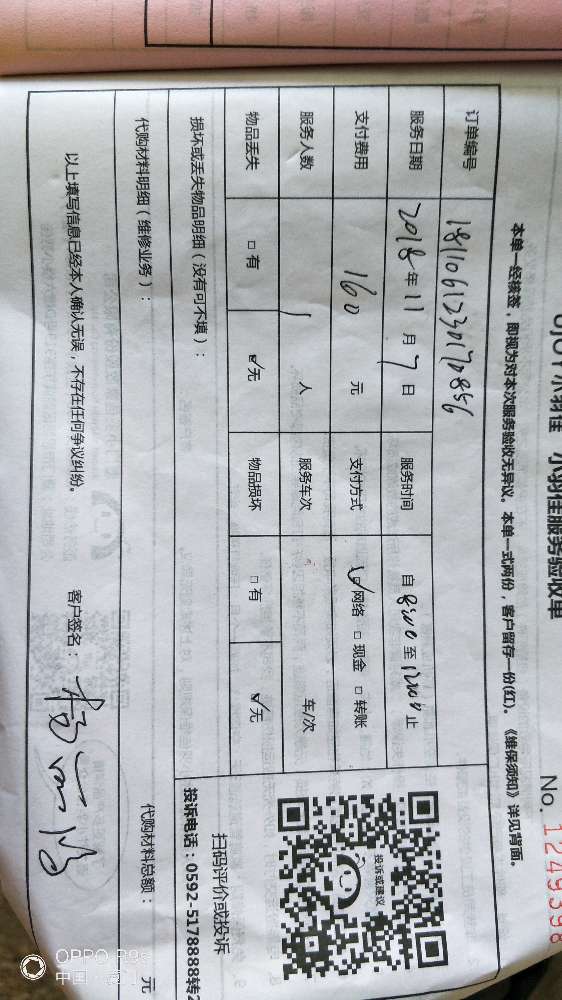 小羽佳 小羽佳服务验收单
No. 1249398
本单一经核签，即视为对本次服务验收无异议。本单一式两份，客户留存一份(红)。《维保须知》详见背面。
订单编号 1811061230170856
服务日期 2018年11月7日 服务时间 自8:00至12:00止
支付费用 160 元 支付方式 ☑网络 □现金 □转账
服务人数 1 人 服务车次 车/次
物品丢失 □有 ☑无 物品损坏 □有 ☑无
投诉或建议
扫码评价或投诉
投诉电话：0592-5178888转2
损坏或丢失物品明细（没有可不填）：
代购材料明细（维修业务）： 代购材料总额： 元
以上填写信息已经本人确认无误，不存在任何争议纠纷。 客户签名：
OPPO R9s
中国·厦门